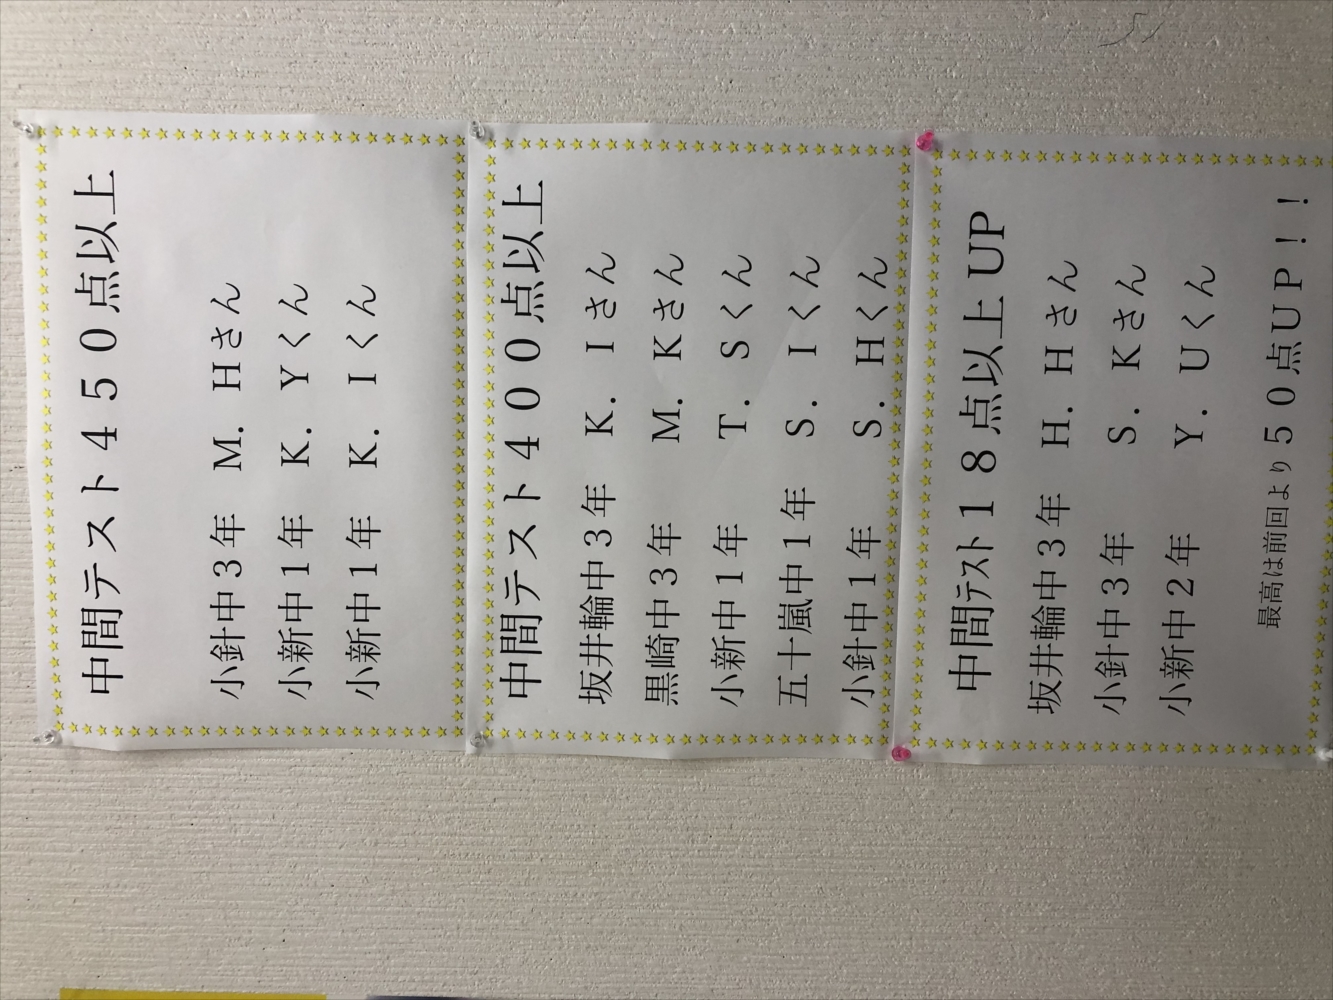 中間テスト４５０点以上
小針中３年　Ｍ．Ｈさん
小新中１年　Ｋ．Ｙくん
小新中１年　Ｋ．Ｉくん
中間テスト４００点以上
坂井輪中３年　Ｋ．Ｉさん
黒崎中３年　Ｍ．Ｋさん
小新中１年　Ｔ．Ｓくん
五十嵐中１年　Ｓ．Ｉくん
小針中１年　Ｓ．Ｈくん
中間ﾃｽﾄ１８点以上UP
坂井輪中３年　Ｈ．Ｈさん
小針中３年　Ｓ．Ｋさん
小新中２年　Ｙ．Ｕくん
最高は前回より５０点ＵＰ！！